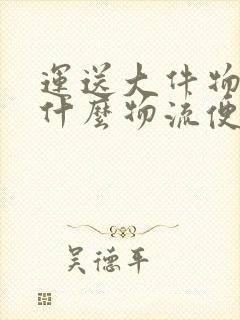 運送大件物
什麼物流便
吴德平